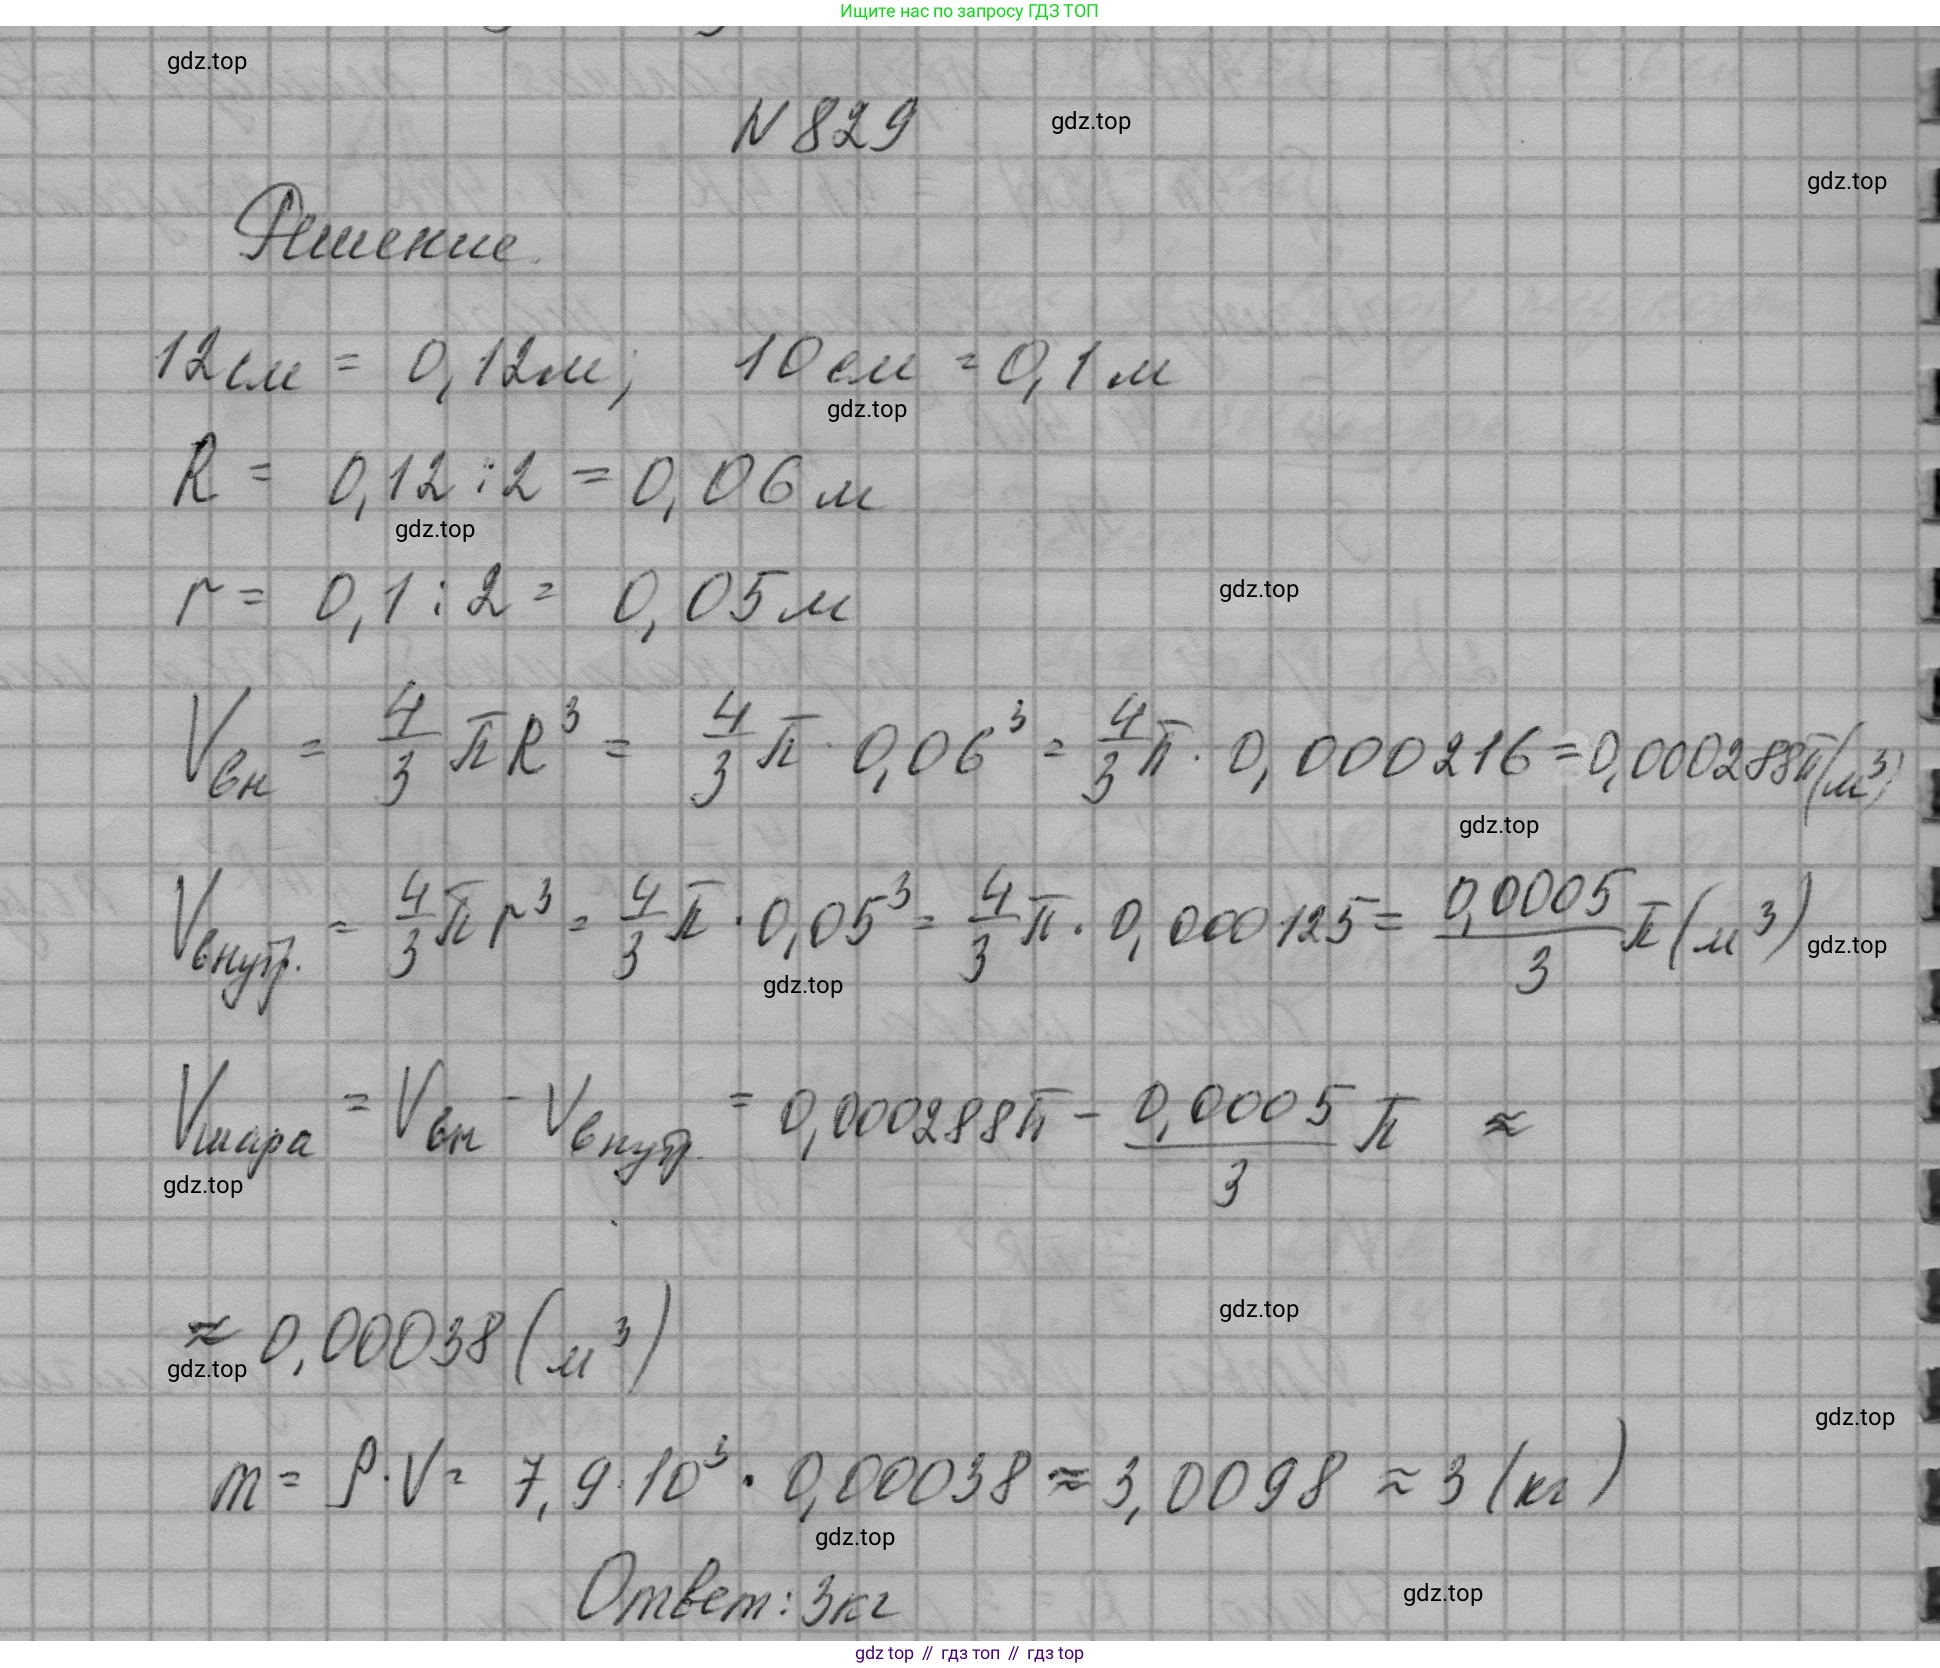 Ищите нас по запросу ГДЗ ТОП
gdz.top
N 829
gdz.top
gdz.top
Решение.
12 см = 0,12 м; 10 см = 0,1 м
gdz.top
R = 0,12 : 2 = 0,06 м
gdz.top
r = 0,1 : 2 = 0,05 м
gdz.top
Vвн = 4/3 π R³ = 4/3 π · 0,06³ = 4/3 π · 0,000216 = 0,000288π (м³)
gdz.top
Vвнутр. = 4/3 π r³ = 4/3 π · 0,05³ = 4/3 π · 0,000125 = 0,0005/3 π (м³)
gdz.top
gdz.top
Vшара = Vвн - Vвнутр. = 0,000288π - 0,0005/3 π ≈
gdz.top
gdz.top
≈ 0,00038 (м³)
gdz.top
gdz.top
m = ρ · V = 7,9 · 10³ · 0,00038 ≈ 3,0098 ≈ 3 (кг)
gdz.top
Ответ: 3 кг
gdz.top
gdz top // гдз топ // гдз top